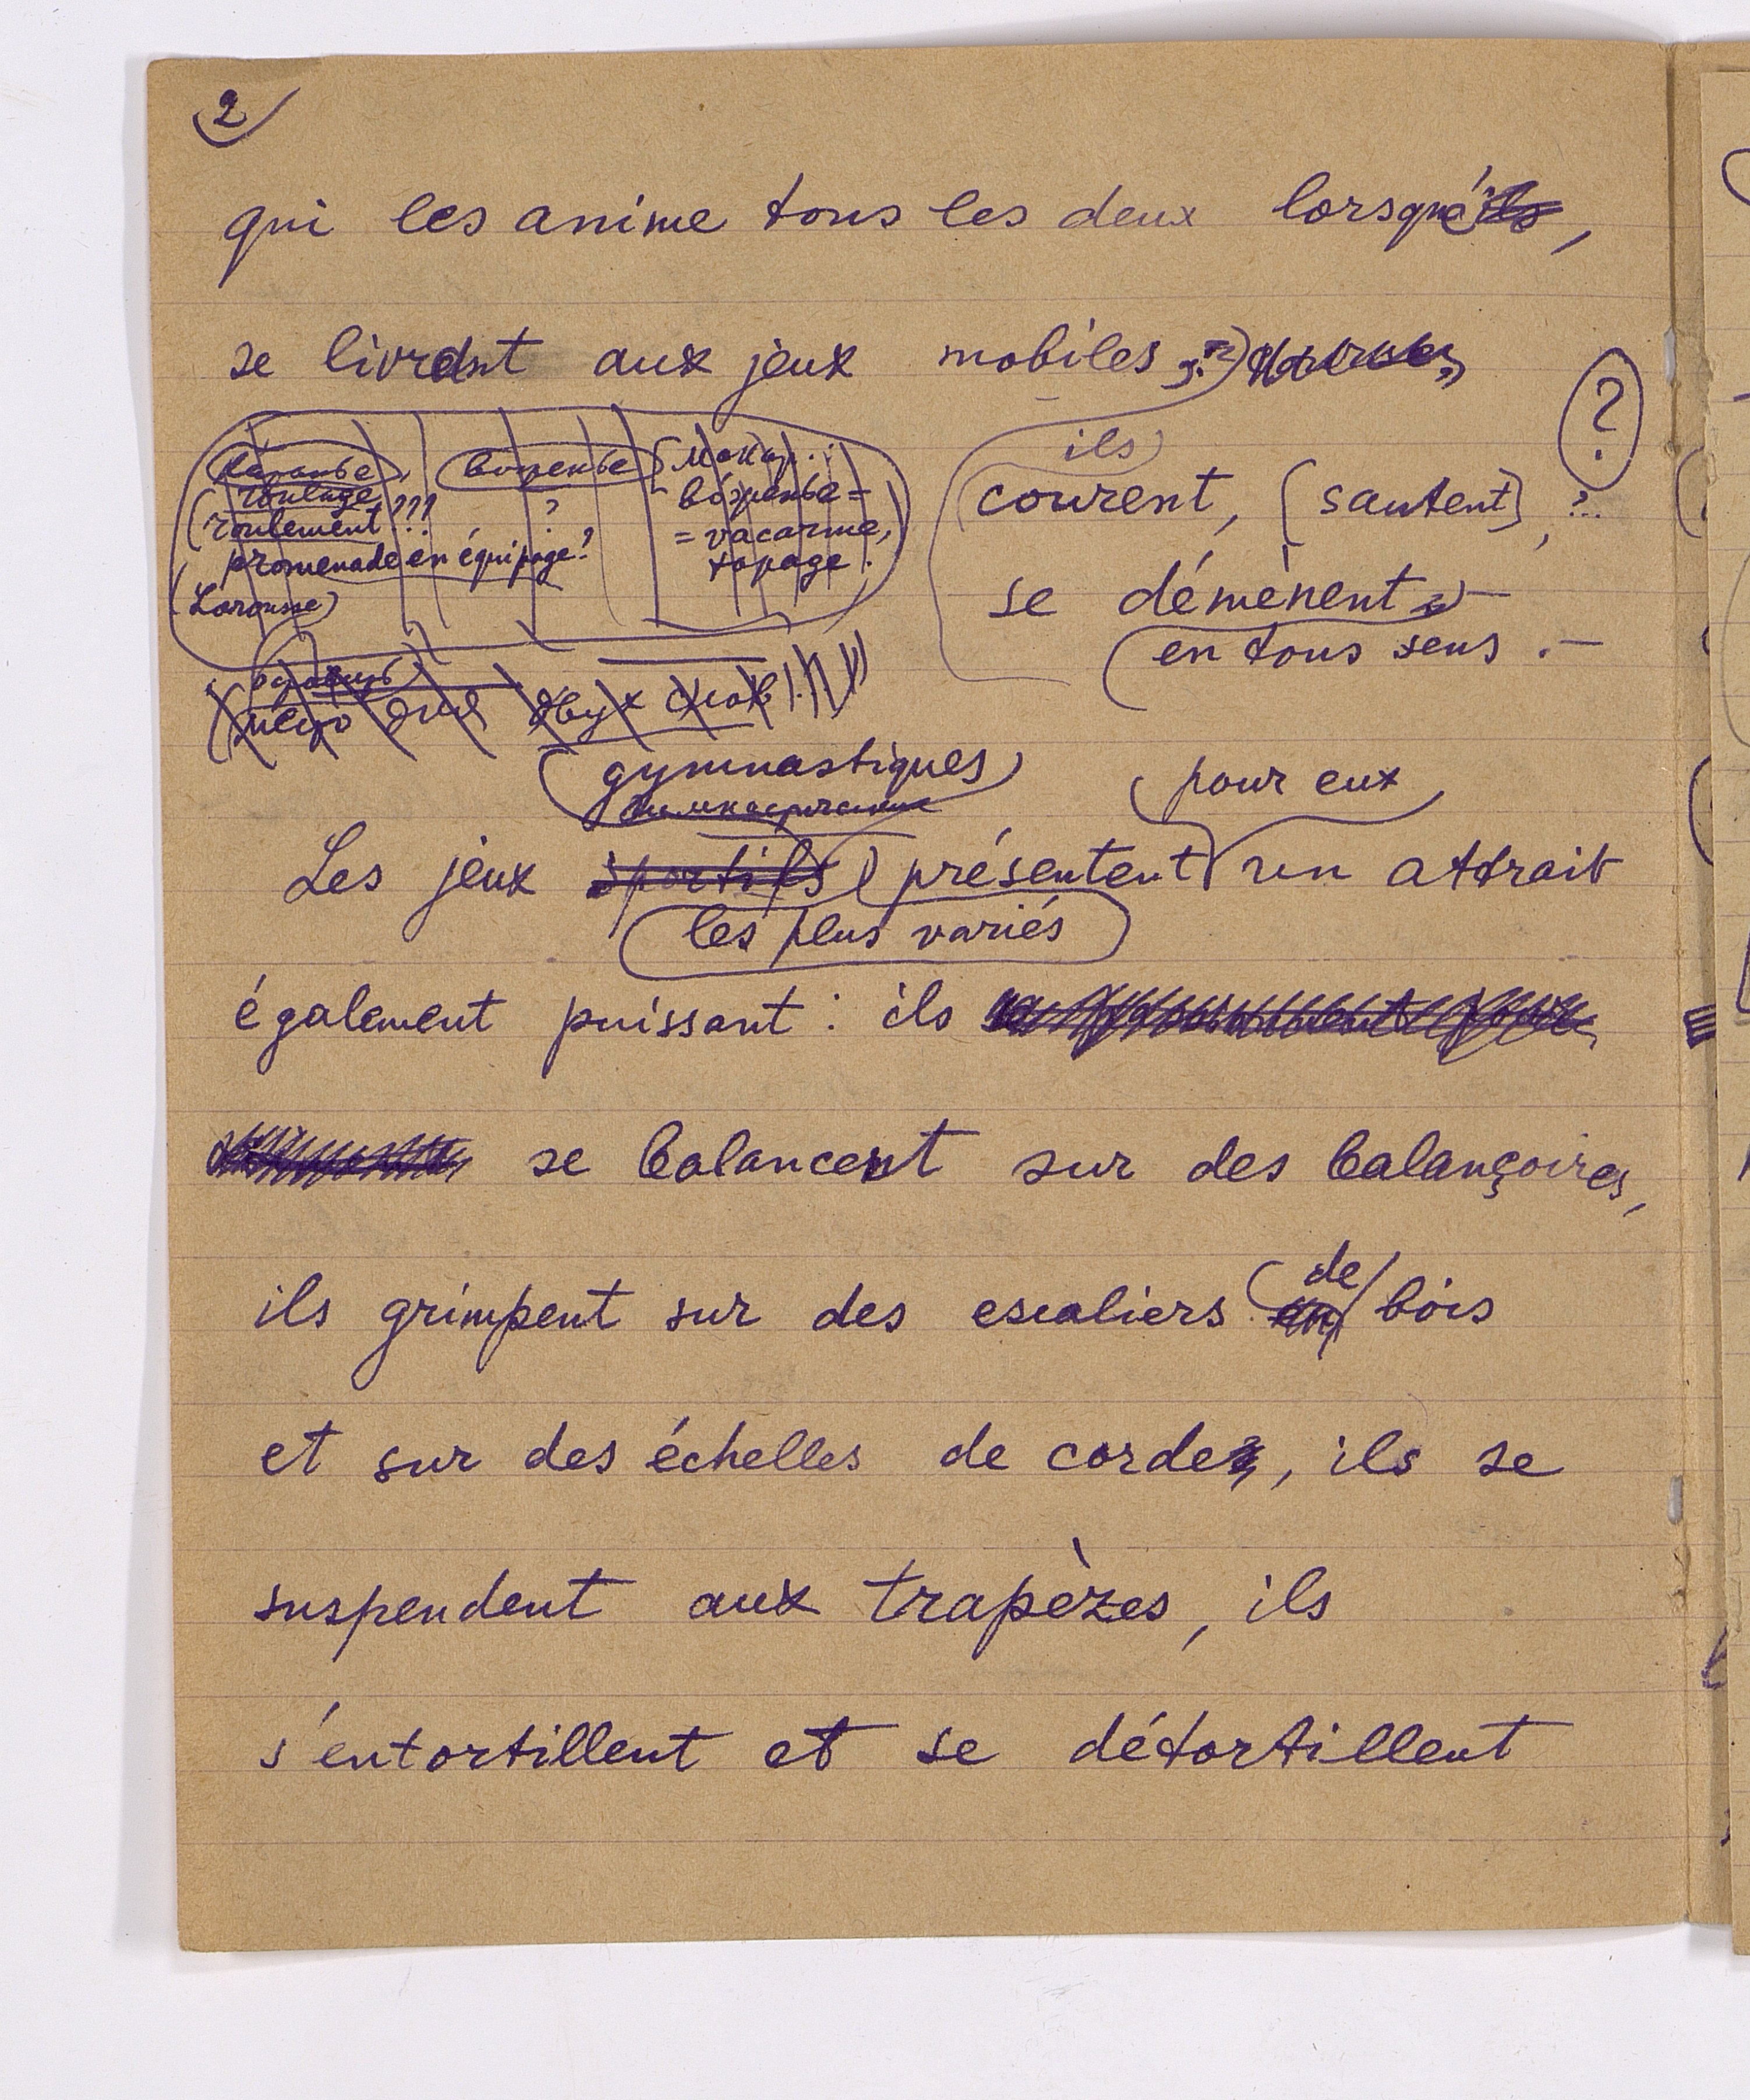 2
qui les anime tous les deux lorsque,
se livrant aux jeux mobiles,
ils
courent, (sautent), ?..
?
se démènent
en tous sens. —
катанье
roulage
(roulement???
promenade en équipage?
(Larousse)
возенье
?
(Макар...
возенье =
= vacarme,
tapage.
место для двух слов!
gymnastiques
гимнастические
pour eux
Les jeux sportifs présentent un attrait
les plus variés
également puissant : ils
se balancent sur des balançoires,
de
ils grimpent sur des escaliers en bois
et sur des échelles de corde, ils se
suspendent aux trapèzes, ils
s'entortillent et se détortillent